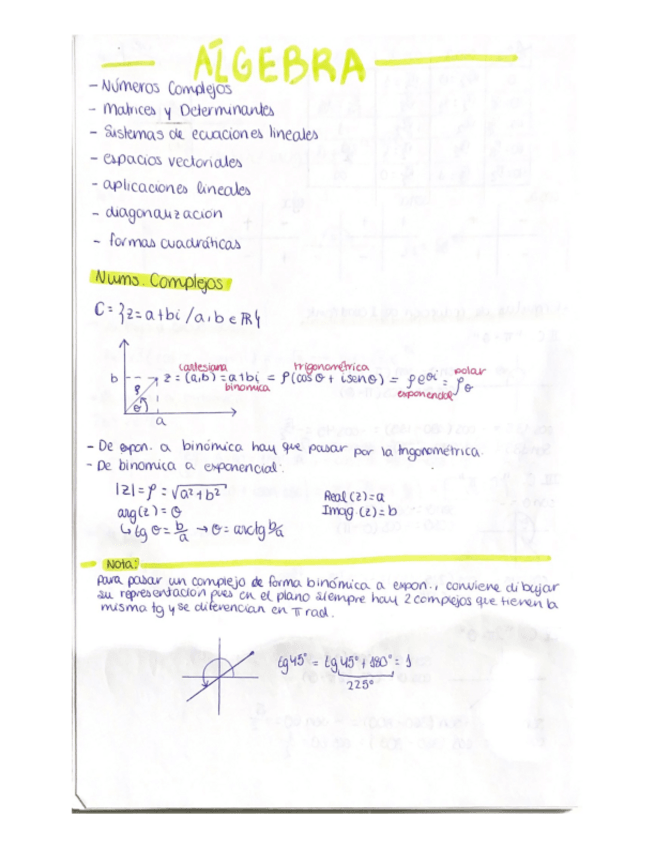 ÁLGEBRA
- Números Complejos
- Matrices y Determinantes
- Sistemas de ecuaciones lineales
- espacios vectoriales
- aplicaciones lineales
- diagonalización
- formas cuadráticas
Nums. Complejos
C = {z = a+bi / a,b ∈ ℝ}
cartesiana trigonométrica polar
b ρ z = (a,b) = a+bi = ρ(cos θ + i sen θ) = ρe^θi = ρ_θ
binómica exponencial
θ
a
- De expon. a binómica hay que pasar por la trigonométrica.
- De binomica a exponencial:
|z| = ρ = √a²+b² Real(z)=a
arg(z) = θ Imag.(z)=b
↳ tg θ = b/a → θ = arctg b/a
Nota:
Para pasar un complejo de forma binómica a expon., conviene dibujar
su representación pues en el plano siempre hay 2 complejos que tienen la
misma tg y se diferencian en π rad.
tg 45° = tg 45° + 180° = 1
225°